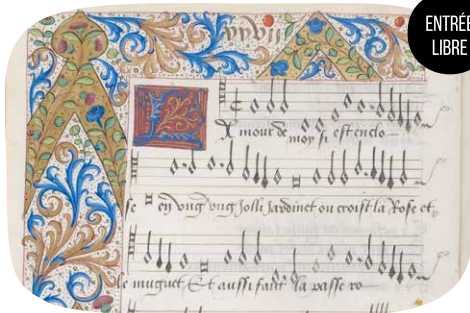 ENTRÉE
LIBRE
xxvii
L Amour de moy si est enclo
se en vng vng Jolli Jardinet ou croist la Rose et
le muguet Et aussi faict la passe ro